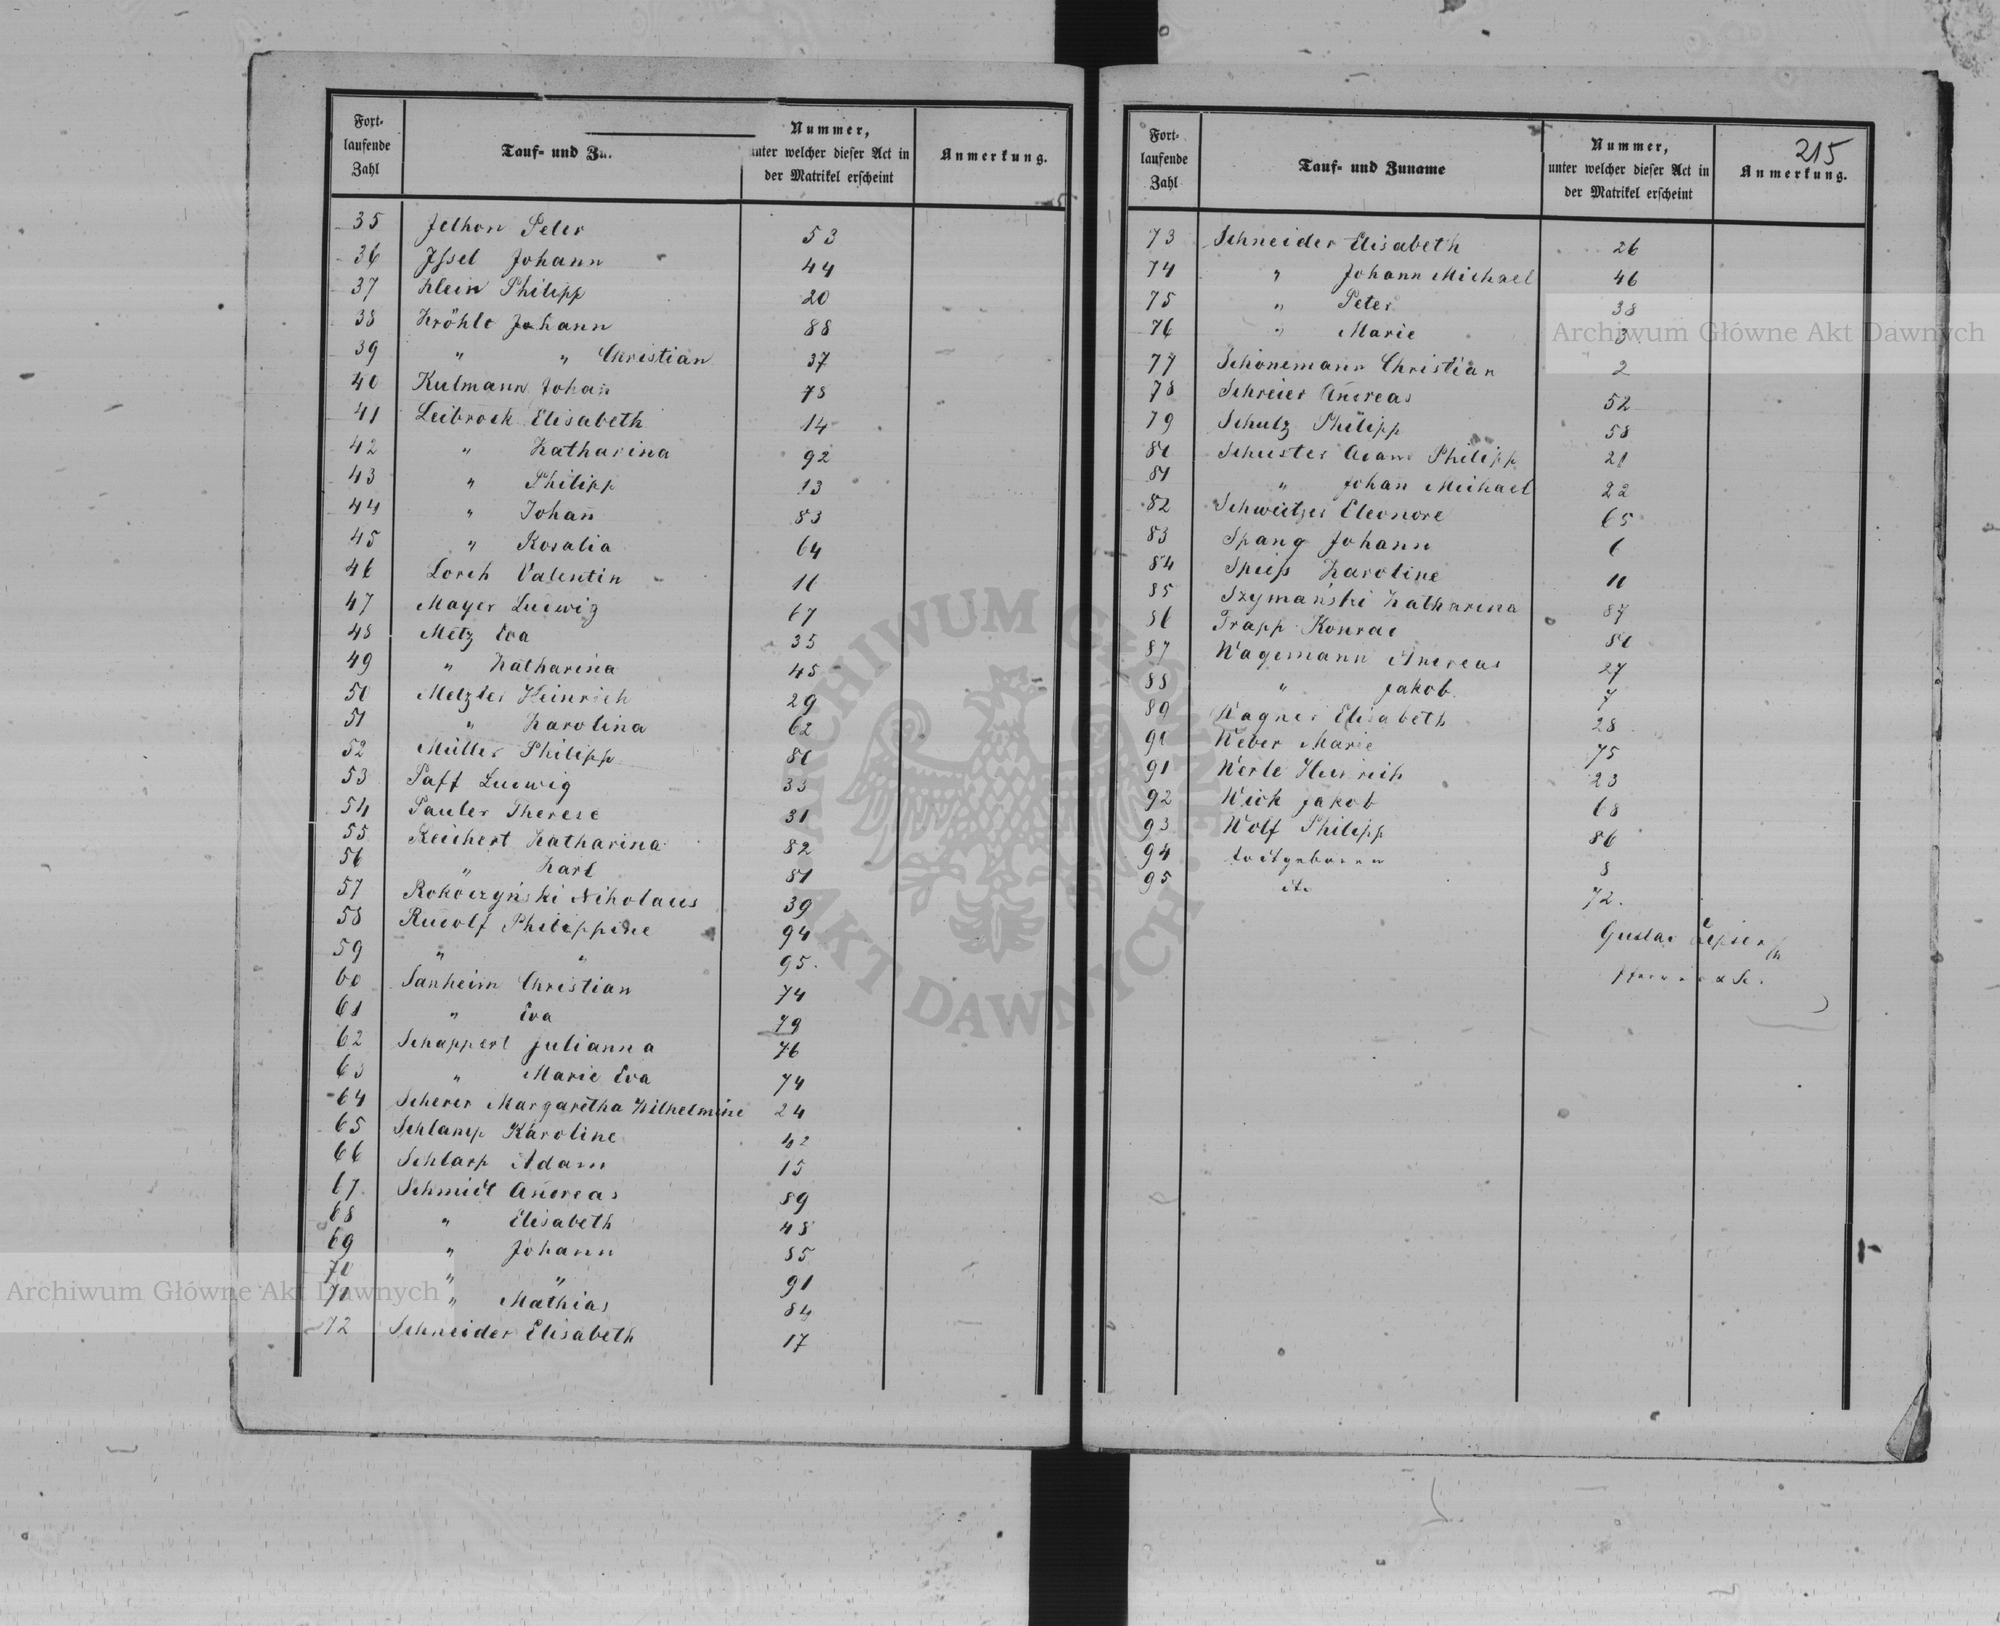 Fort-
laufende
Zahl
Tauf- und Zu.
Nummer,
unter welcher dieser Act in
der Matrikel erscheint
Anmerkung.
35 Jelhon Peter 53
36 Issel Johann 44
37 Klein Philipp 20
38 Kröhle Johann 88
39 " " Christian 37
40 Kulmann Johan̄ 78
41 Leibrock Elisabeth 14
42 " Katharina 92
43 " Philipp 13
44 " Johan̄ 83
45 " Rosalia 64
46 Lorch Valentin 16
47 Mayer Ludwig 67
48 Metz Eva 35
49 " Katharina 45
50 Metzler Heinrich 29
51 " Karolina 62
52 Müller Philipp 80
53 Paff Ludwig 33
54 Pauler Therese 31
55 Reichert Katharina 82
56 " Karl 81
57 Rokoczyński Nikolaus 39
58 Rudolf Philippine 94
59 " " 95.
60 Sanheim Christian 74
61 " Eva 79
62 Schappert Julianna 76
63 " Marie Eva 74
64 Scherer Margaretha Wilhelmine 24
65 Schlamp Karoline 42
66 Schlarp Adam 15
67 Schmidt Andreas 89
68 " Elisabeth 48
69 " Johann 85
70 " " 91
71 " Mathias 84
72 Schneider Elisabeth 17
215
Fort-
laufende
Zahl
Tauf- und Zuname
Nummer,
unter welcher dieser Act in
der Matrikel erscheint
Anmerkung.
73 Schneider Elisabeth 26
74 " Johann Michael 46
75 " Peter 38
76 " Marie 3
77 Schönemann Christian 2
78 Schreier Andreas 52
79 Schulz Philipp 58
80 Schuster Adam Philipp 21
81 " Johan̄ Michael 22
82 Schweitzer Eleonore 65
83 Spang Johann 6
84 Spieß Karoline 11
85 Szymański Katharina 87
86 Trapp Konrad 80
87 Wagemann Andreas 27
88 " Jakob 7
89 Wagner Elisabeth 28
90 Weber Marie 75
91 Werle Heinrich 23
92 Wick Jakob 68
93 Wolf Philipp 86
94 todtgeboren 8
95 dto 72.
Gustav
Archiwum Główne Akt Dawnych
ARCHIWUM GŁÓWNE AKT DAWNYCH
Archiwum Główne Akt Dawnych